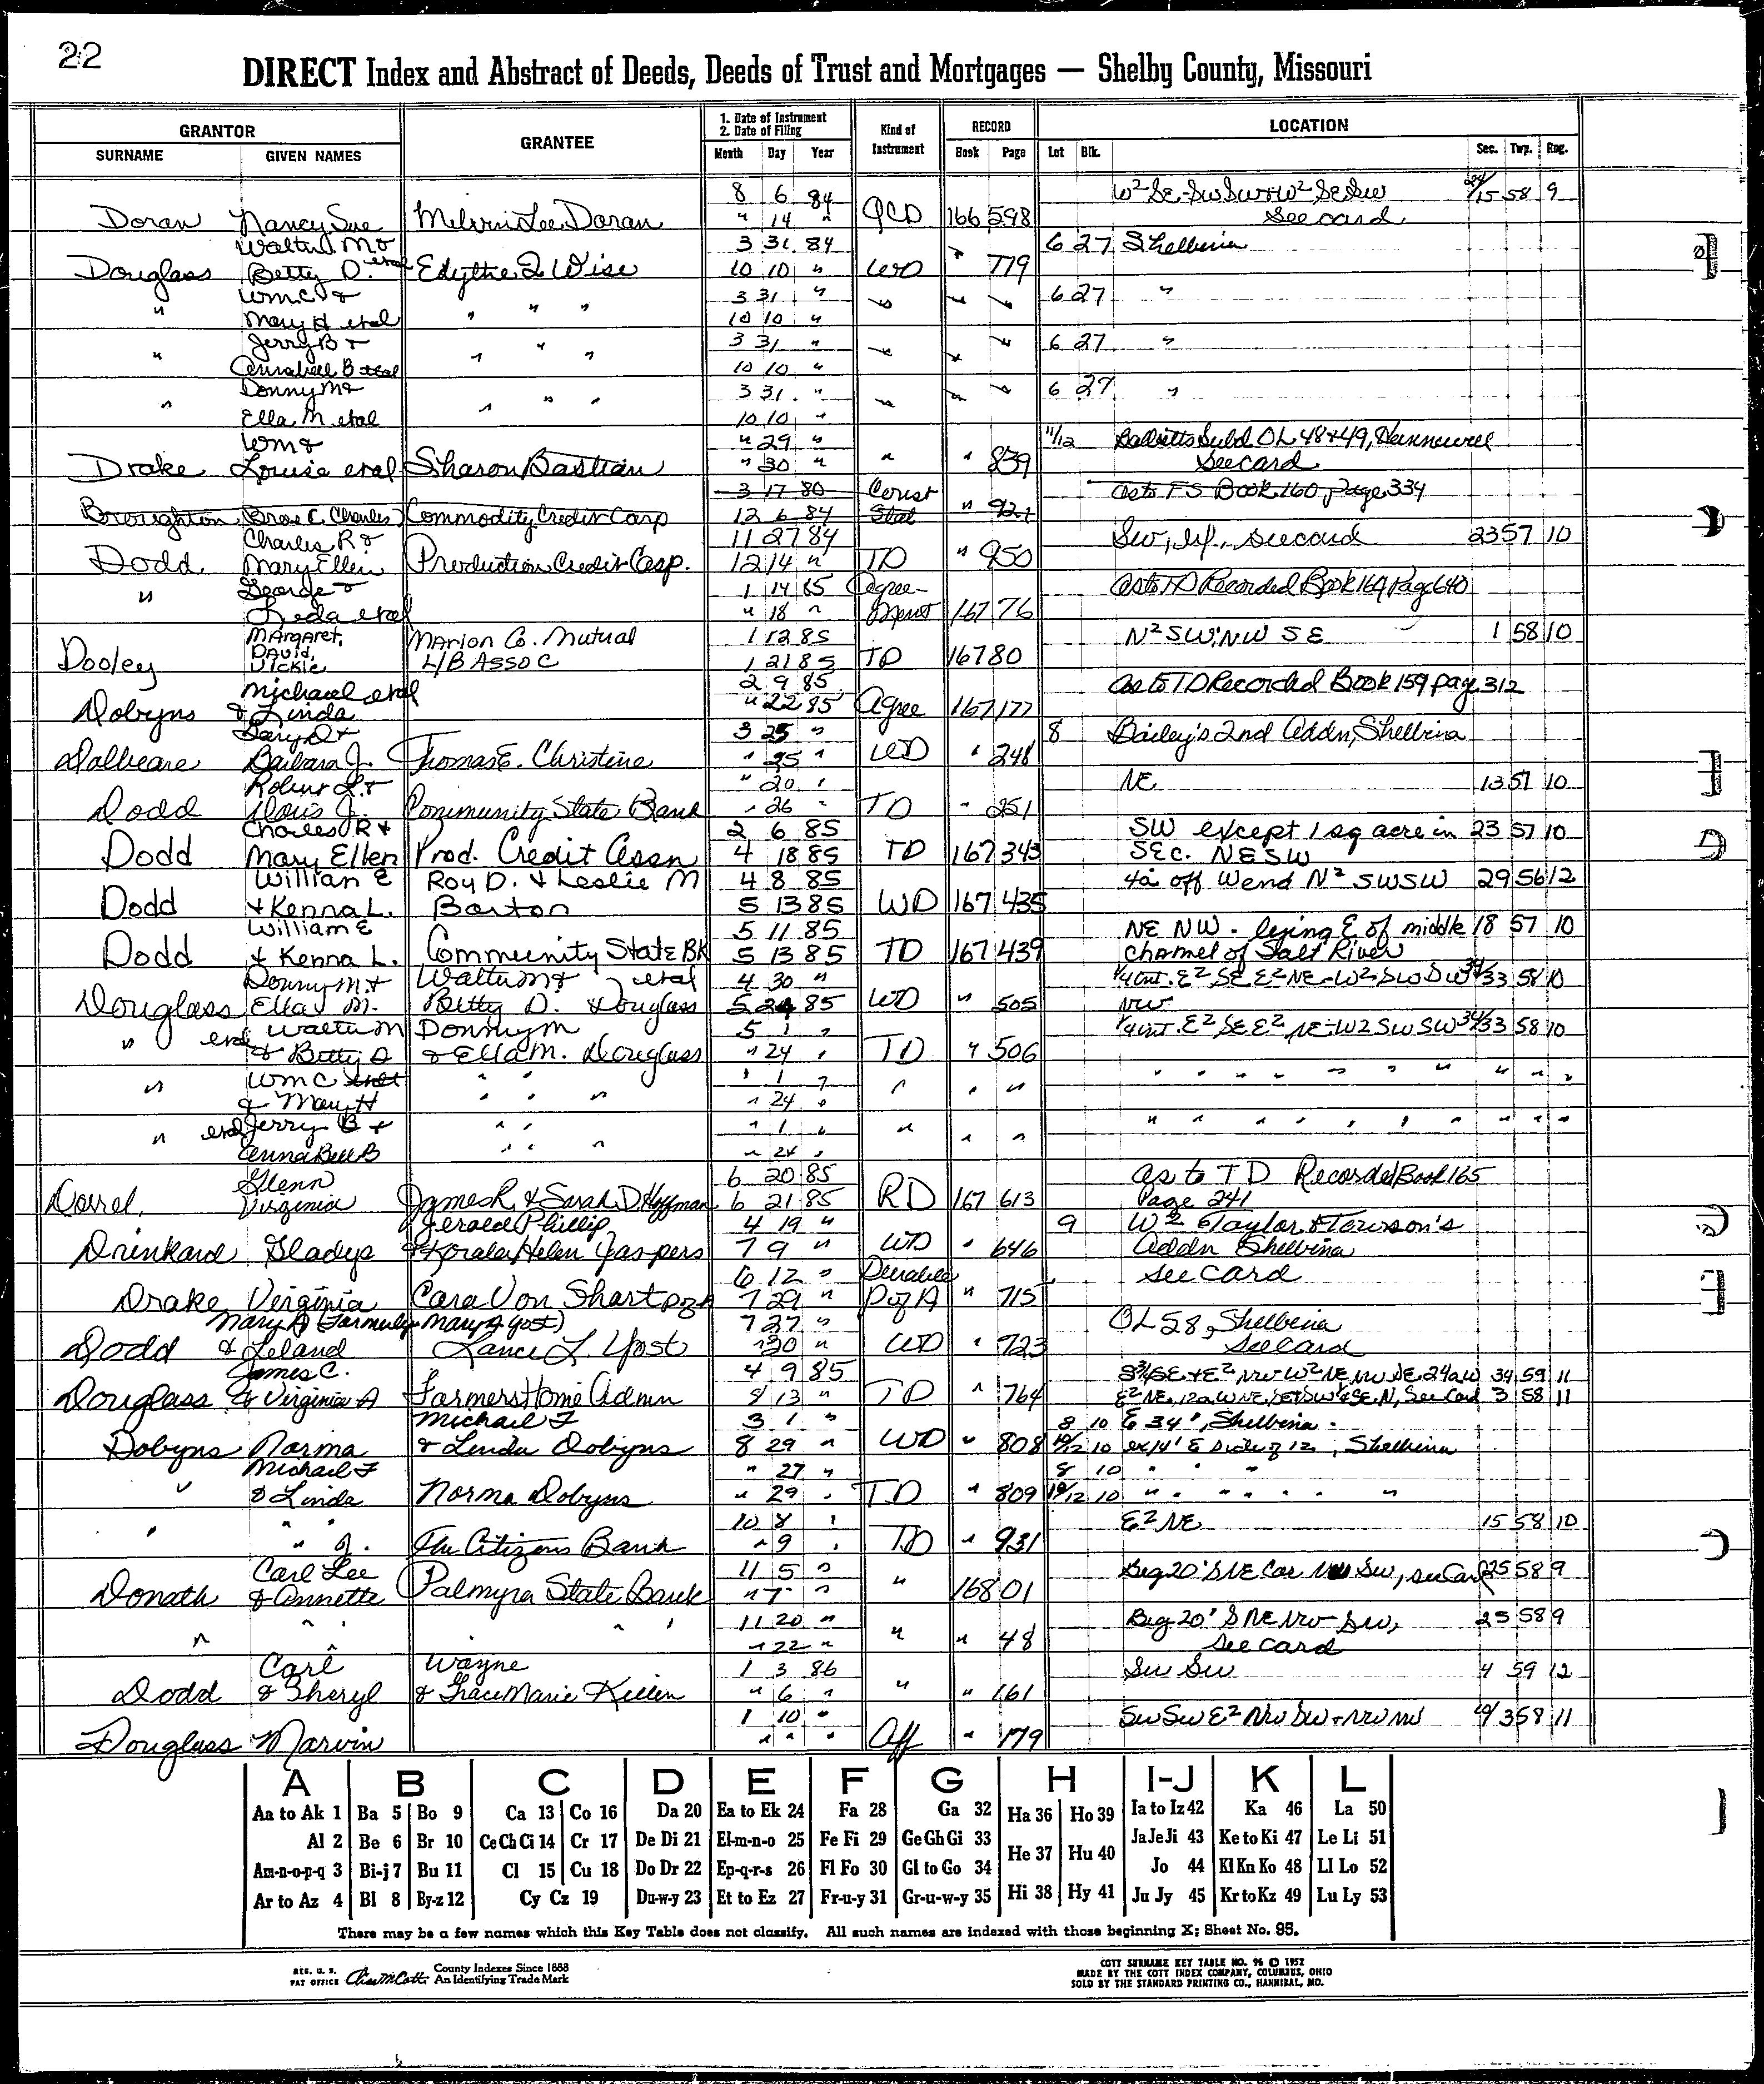 22
DIRECT Index and Abstract of Deeds, Deeds of Trust and Mortgages — Shelby County, Missouri
GRANTOR GRANTEE 1. Date of Instrument 2. Date of Filing Kind of Instrument RECORD LOCATION
SURNAME GIVEN NAMES Month Day Year Book Page Lot Blk. Sec. Twp. Rng.
8 6 84 W² SE-SW SW+W² SE SW 15 58 9
Doran Nancy Sue Melvin Lee Doran " 14 " QCD 166 598 See card
Walter M & 3 31 84 6 27 Shelbina
Douglass Betty D. etal Edythe L Wise 10 10 " WD " 779
Wm C & 3 31 " 6 27 "
" Mary H etal " " " 10 10 " " " "
Jerry B & 3 31 " 6 27 "
" Annabell B etal " " " 10 10 " " " "
Donny M & 3 31 " 6 27 "
" Ella M etal " " " 10 10 " " " "
Wm & " 29 " 11/12 Subd OL 48+49, Hunnewell
Drake Louise etal Sharon Bastian " 30 " " " 839 See card
3 17 80 Const as to FS Book 160 page 334
Broughton, Bros C. Charles Commodity Credit Corp 12 6 84 Stat " 921
Charles R & 11 27 84 SW, see card 23 57 10
Dodd Mary Ellen Production Credit Corp. 12 14 " TD " 950
George & 1 14 85 Agree- as to TD Recorded Book 164 Page 640
" Leda etal " 18 " ment 167 76
Margaret, Marion Co. Mutual 1 12 85 N² SW; NW SE 1 58 10
Dooley David, Vickie L/B Assoc 1 21 85 TD 167 80
Michael etal 2 9 85 as to TD Recorded Book 159 page 312
Dobyns & Linda " 22 85 Agree 167 177
Gary D & 3 25 " 8 Bailey's 2nd Addn, Shelbina
Dalbeare Barbara J. Thomas E. Christine " 25 " WD " 248
Robert L & " 20 " NE 13 57 10
Dodd Doris J. Community State Bank " 26 " TD " 251
Charles R & 2 6 85 SW except 1 sq acre in 23 57 10
Dodd Mary Ellen Prod. Credit Assn 4 18 85 TD 167 343 SEc. NESW
Willian E Roy D. & Leslie M 4 8 85 4a off W end N² SWSW 29 56 12
Dodd & Kenna L. Barton 5 13 85 WD 167 435
William E 5 11 85 NE NW. lying E of middle 18 57 10
Dodd & Kenna L. Community State BK 5 13 85 TD 167 439 channel of Salt River
Donny M & Walter M & etal 4 30 " 1/4 int. E² SE E² NE-W² SW SW 34/33 58 10
Douglass Ella M. Betty D. Douglass 5 24 85 WD " 505 NW
" etal Walter M Donny M 5 1 " 1/4 int. E² SE E² NE-W2 SW SW 34/33 58 10
& Betty D & Ella M. Douglass " 24 " TD " 506
Wm C etal " " " 1 " " " " " " " " " " "
" & Mary H " " " " 24 " " " "
etal Jerry B & " " " 1 " " " " " " " " " " " "
" Anna Bell B " " " " 24 " " "
Glenn 6 20 85 as to TD Recorded Book 165
Dorrel Virginia James R & Sarah D. Hoffman 6 21 85 RD 167 613 Page 241
Jerald Phillip 4 19 " 9 W2 Taylor & Towson's
Drinkard Gladys & Korala Helen Jaspers 7 9 " WD " 646 Addn Shelbina
6 12 " Durable see card
Drake Virginia Cara Von Shart 7 29 " P of A " 715
Mary A (Formerly Mary A Yost) 7 27 " OL 58, Shelbina
Dodd & Leland Lance L. Yost " 30 " WD " 723 See Card
James C. 4 9 85 34 59 11
Douglass & Virginia A Farmers Home Admn 8 13 " TD " 764 See Card 3 58 11
Michael F 3 1 " 8 10 E 34', Shelbina
Dobyns Norma & Linda Dobyns 8 29 " WD " 808 10/12 10 ex 14' E side of 12, Shelbina
Michael F " 27 " 8 10 " " "
" & Linda Norma Dobyns " 29 " TD " 809 10/12 10 " " " " " "
" " " 10 8 " E² NE 15 58 10
" J. The Citizens Bank " 9 " TD " 931
Carl Lee 11 5 " Beg 20' S NE Cor NW SW, see Card 25 58 9
Donath & Annette Palmyra State Bank " 7 " " 168 01
11 20 " Beg 20' S NE NW SW, 25 58 9
" " " " " " 22 " " " 48 see card
Carl Wayne 1 3 86 SW SW 4 59 12
Dodd & Sheryl & Grace Marie Killen " 6 " " " 161
1 10 " SW SW E² NW SW + NW NW 10/3 58 11
Douglass Marvin " " " Aff " 179
A B C D E F G H I-J K L
Aa to Ak 1 Ba 5 Bo 9 Ca 13 Co 16 Da 20 Ea to Ek 24 Fa 28 Ga 32 Ha 36 Ho 39 Ia to Iz 42 Ka 46 La 50
Al 2 Be 6 Br 10 Ce Ch Ci 14 Cr 17 De Di 21 El-m-n-o 25 Fe Fi 29 Ge Gh Gi 33 He 37 Hu 40 Ja Je Ji 43 Ke to Ki 47 Le Li 51
Am-n-o-p-q 3 Bi-j 7 Bu 11 Cl 15 Cu 18 Do Dr 22 Ep-q-r-s 26 Fl Fo 30 Gl to Go 34 Jo 44 Kl Kn Ko 48 Ll Lo 52
Ar to Az 4 Bl 8 By-z 12 Cy Cz 19 Du-w-y 23 Et to Ez 27 Fr-u-y 31 Gr-u-w-y 35 Hi 38 Hy 41 Ju Jy 45 Kr to Kz 49 Lu Ly 53
There may be a few names which this Key Table does not classify. All such names are indexed with those beginning X; Sheet No. 95.
REG. U. S. PAT OFFICE County Indexes Since 1888 An Identifying Trade Mark
COTT SURNAME KEY TABLE NO. 96 © 1952
MADE BY THE COTT INDEX COMPANY, COLUMBUS, OHIO
SOLD BY THE STANDARD PRINTING CO., HANNIBAL, MO.